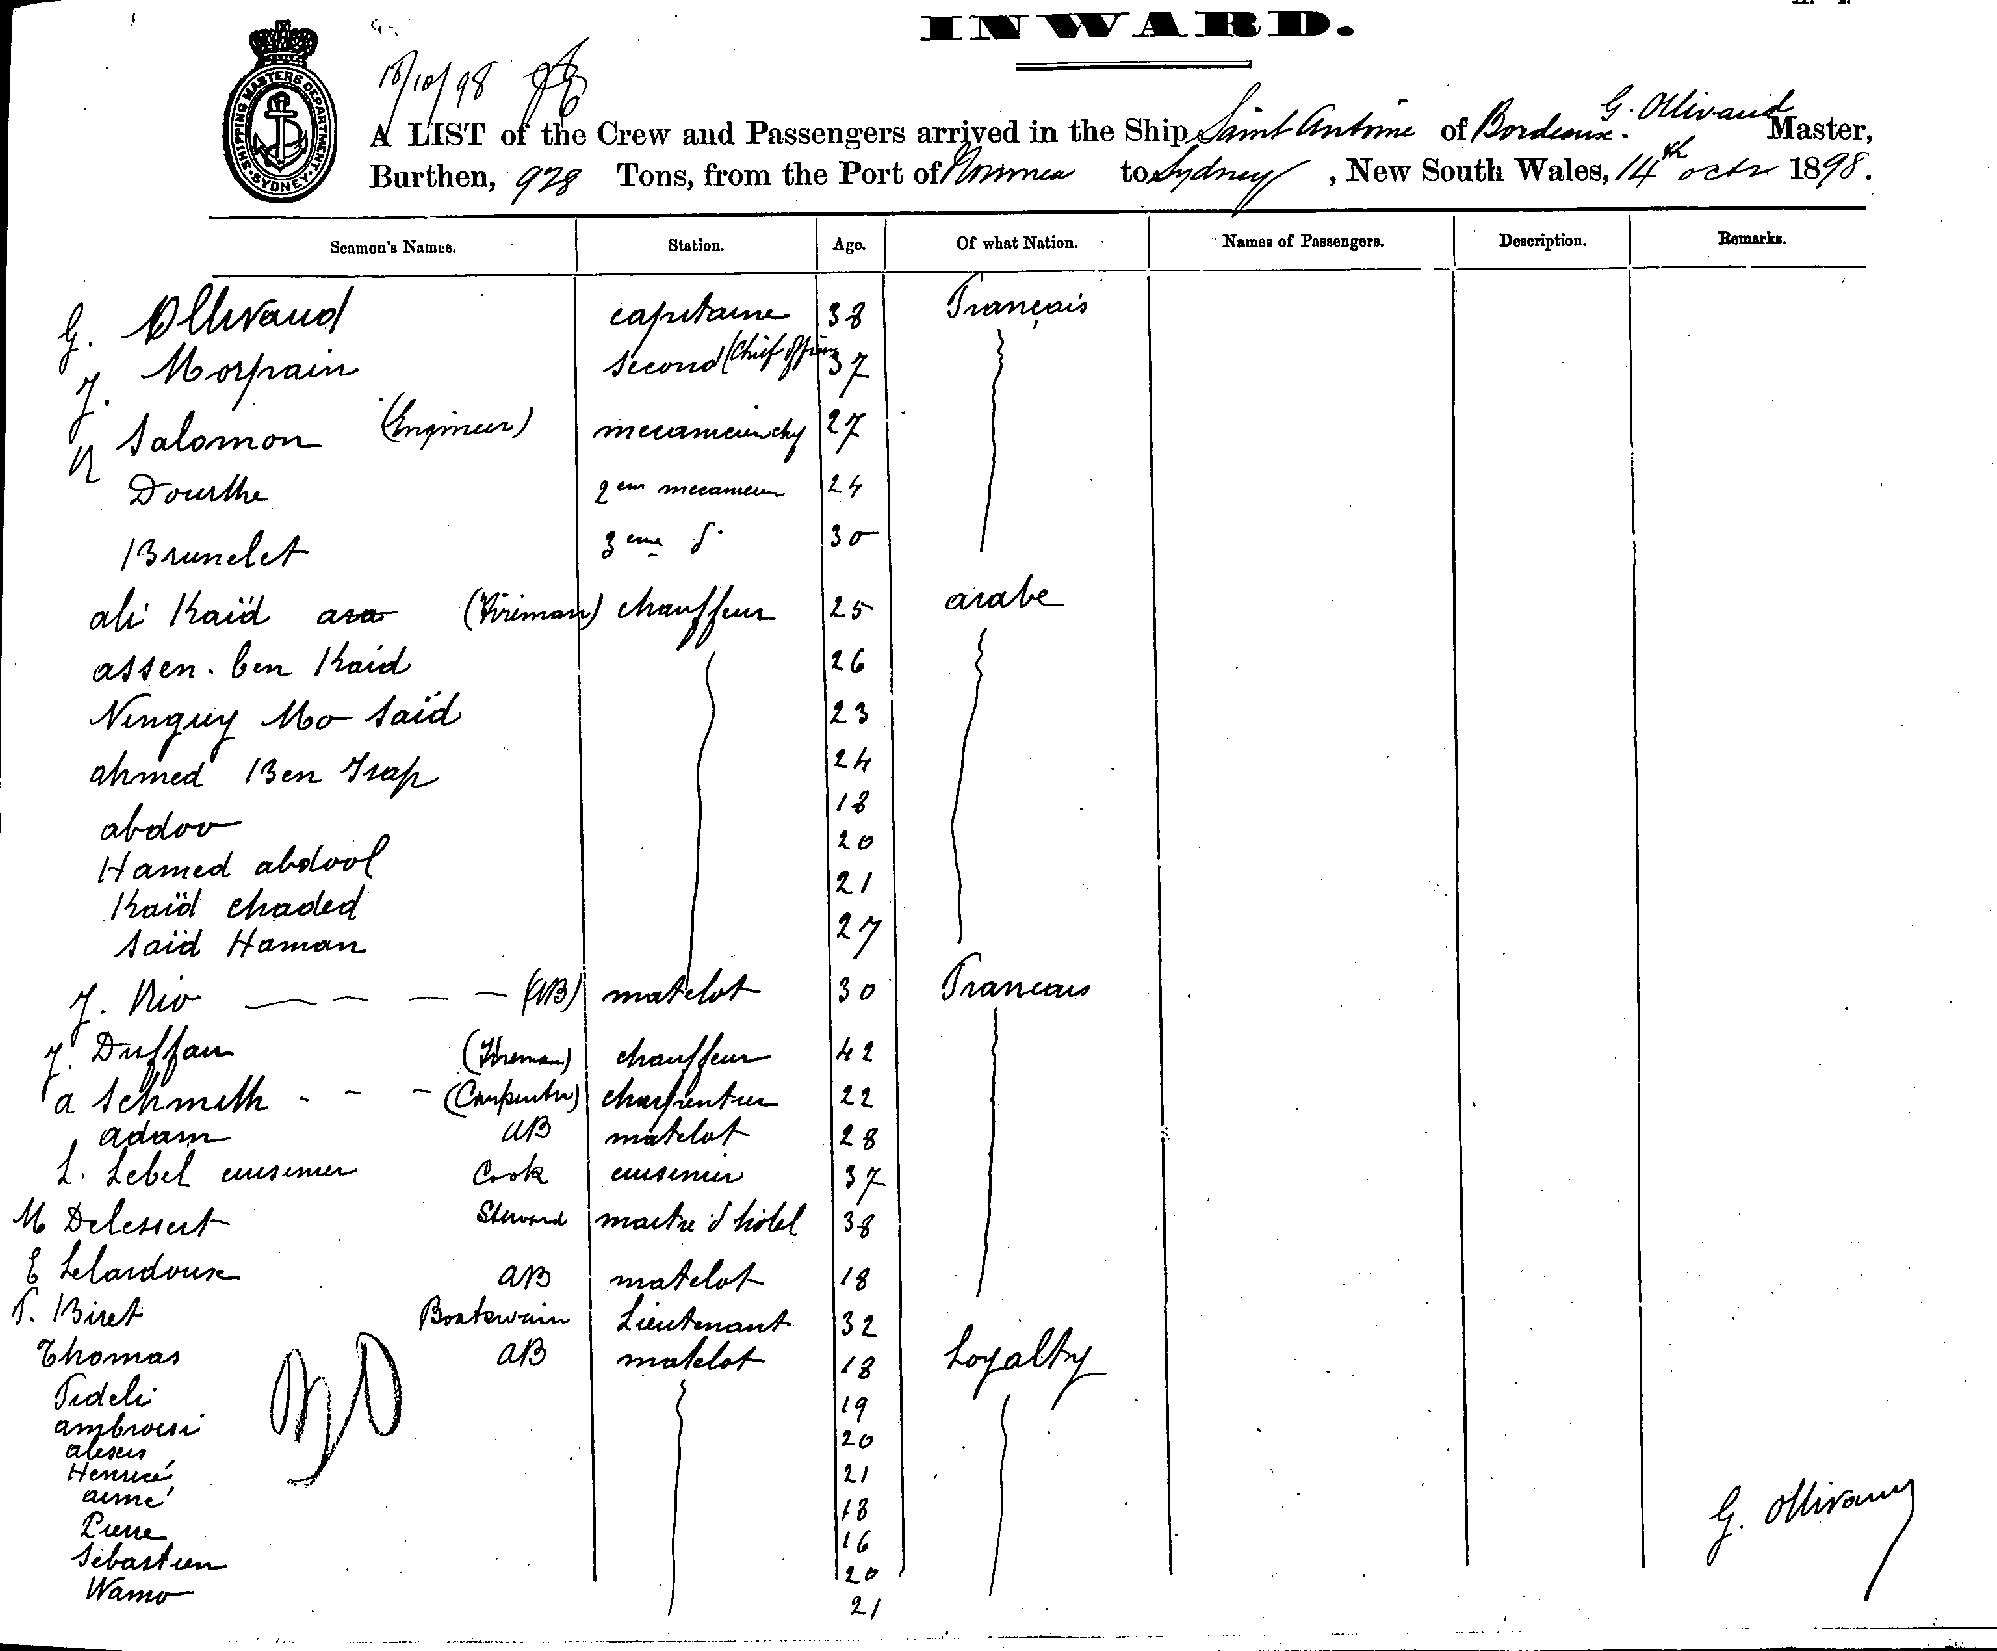 INWARD.
SHIPPING MASTERS DEPARTMENT SYDNEY
18/10/98
G. Ollivaud
A LIST of the Crew and Passengers arrived in the Ship Saint Antoine of Bordeaux. Master,
Burthen, 928 Tons, from the Port of Noumea to Sydney, New South Wales, 14th octr 1898.
Seamen's Names. Station. Age. Of what Nation. Names of Passengers. Description. Remarks.
G. Ollivaud capitaine 38 Français
J. Morpain second (Chief officer 37
Salomon (Engineer) 27
Dourthe 2em mecanicien 24
Brunelet 3eme d. 30
ali Kaïd (Fireman) chauffeur 25 arabe
assen. ben Kaid 26
Ninguy Mo Saïd 23
ahmed Ben Trap 24
abdoo 18
Hamed abdool 20
Kaïd chaded 21
Saïd Haman 27
J. Rio - - - - (AB) matelot 30 Francais
J. Duffau (Fireman) chauffeur 42
a Schmith - - - (Carpenter) charpentier 22
adam AB matelot 28
L. Lebel cuisinier Cook cuisinier 37
M Delessert Steward maitre d'hôtel 38
E Lelardoux AB matelot 18
T. Biret Boatswain Lieutenant 32
Thomas AB matelot 18 Loyalty
Fideli 19
ambroisi 20
alexis 21
Henrié 18
aimé 16
Pierre 20
Sébastien 21
Wamo
G. Ollivaud